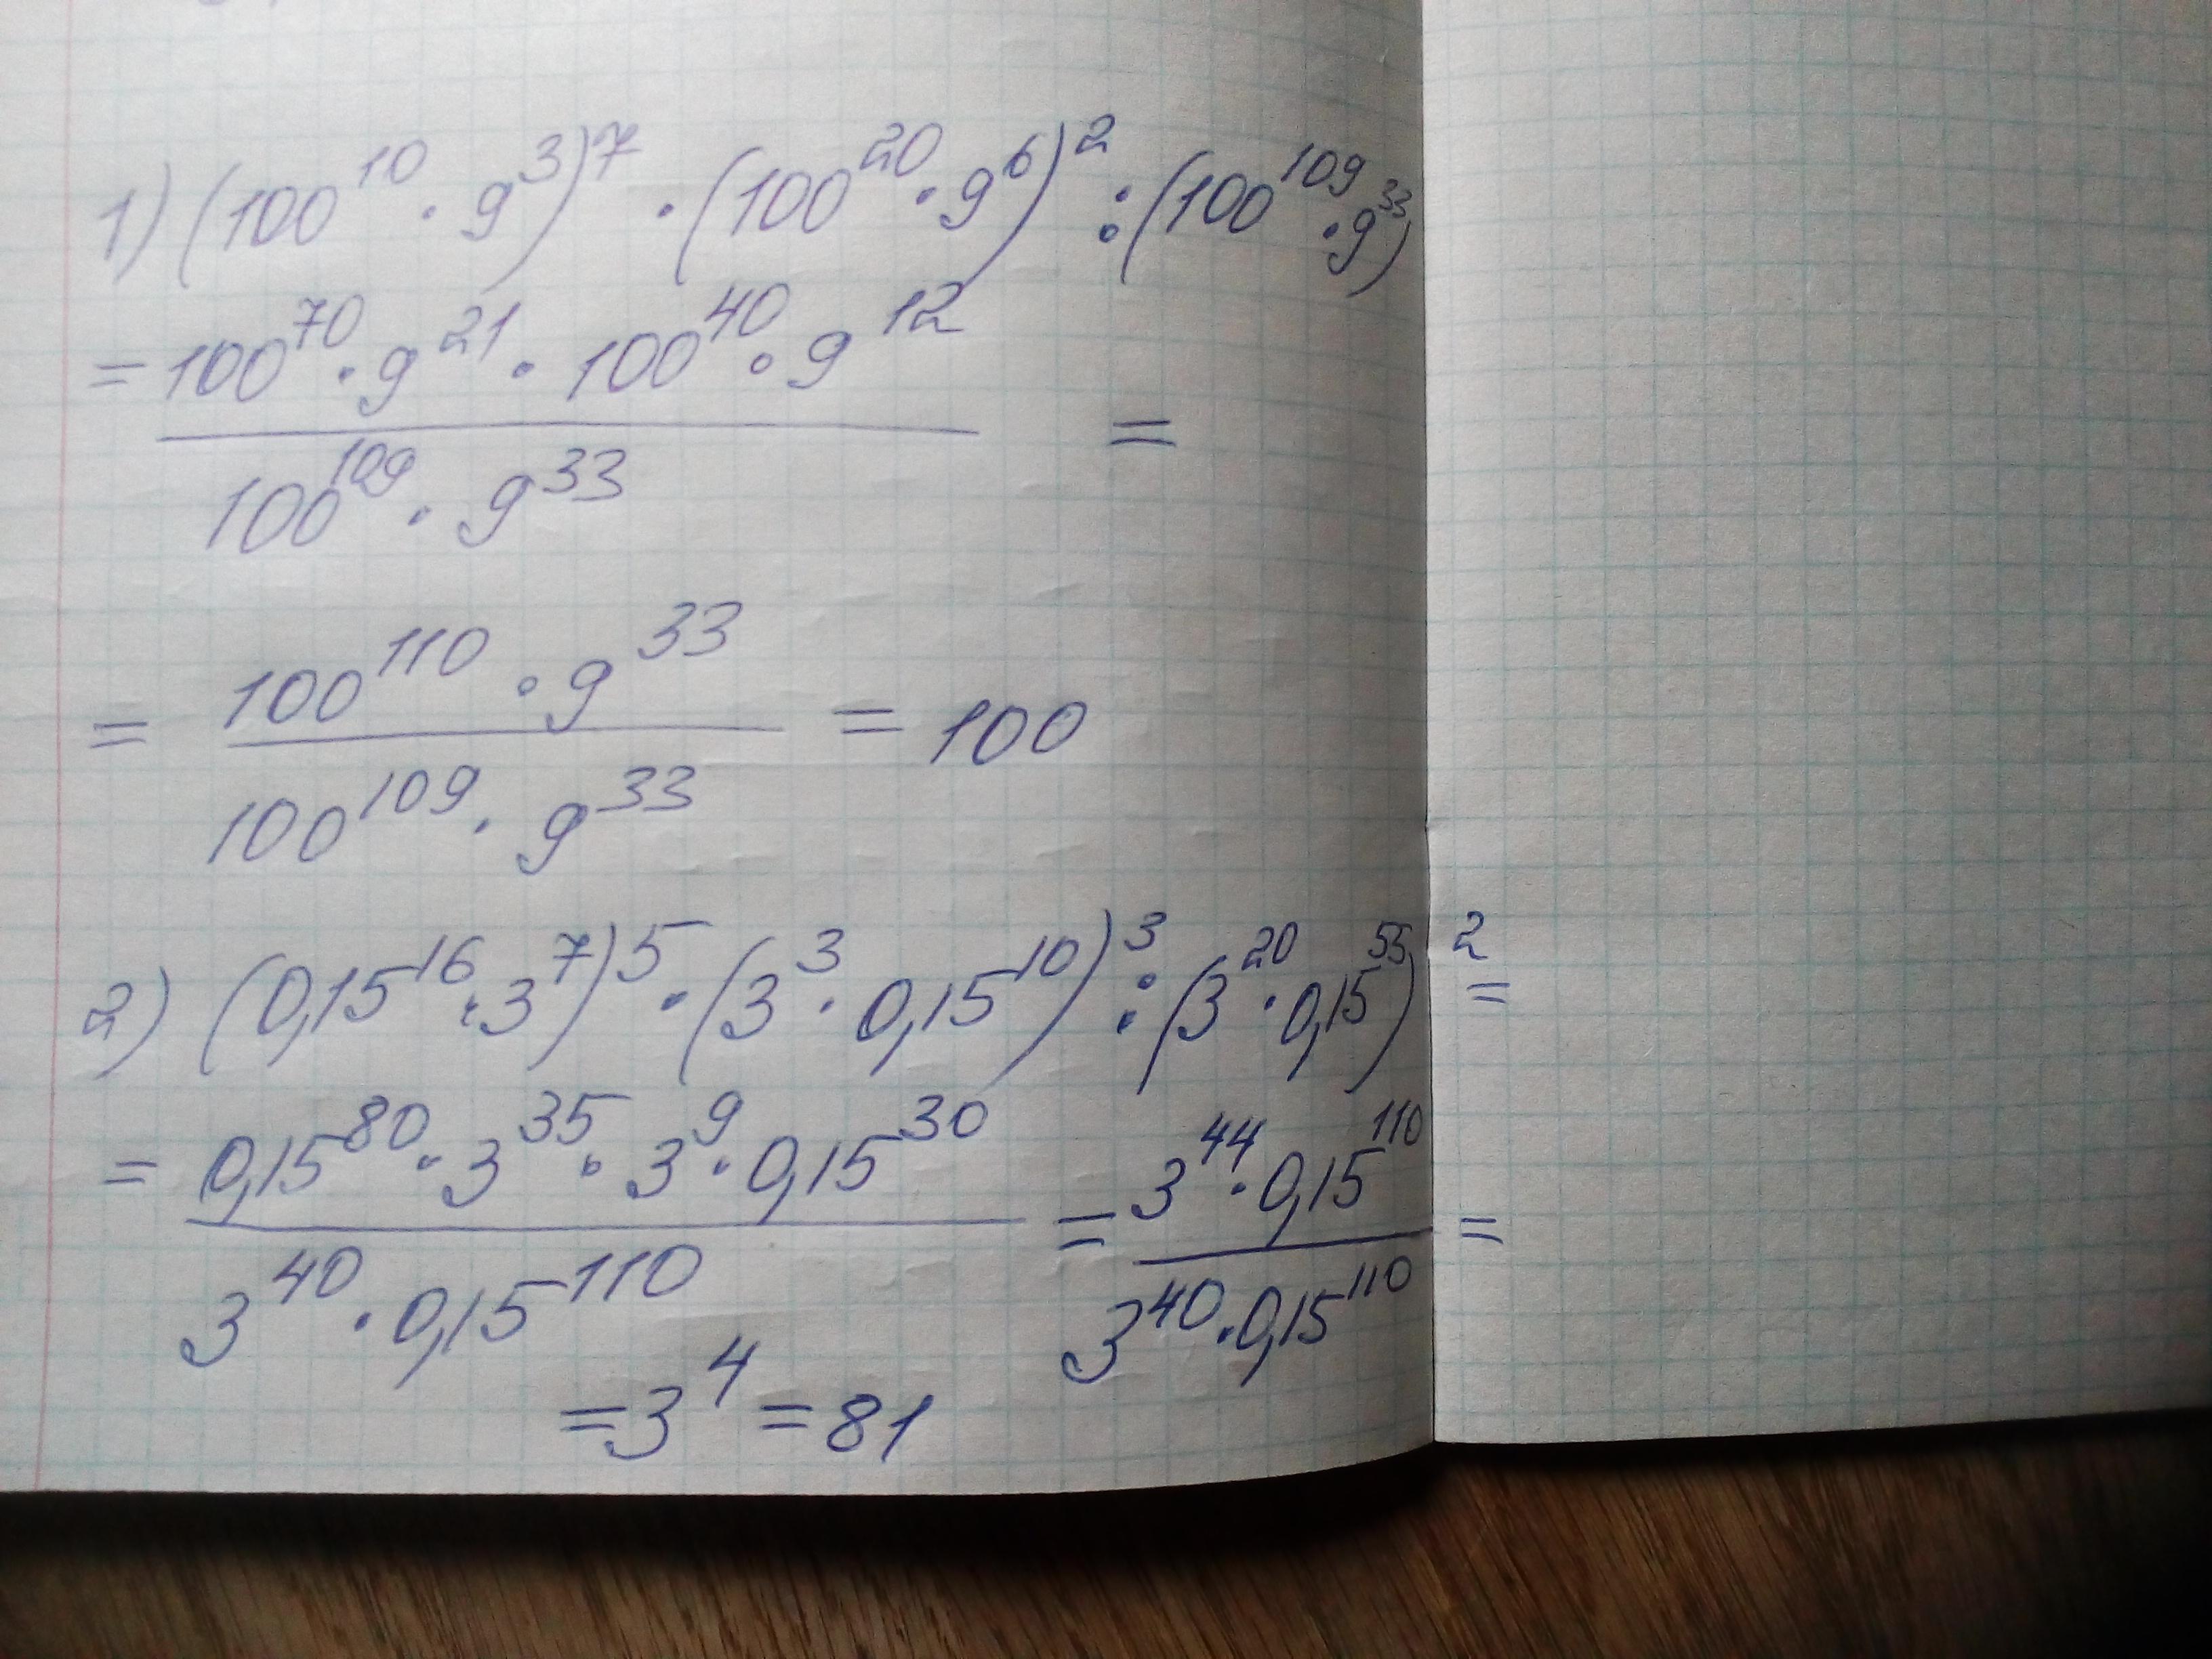 1) (100^10 · 9^3)^7 · (100^20 · 9^6)^2 : (100^109 · 9^33)
= 100^70 · 9^21 · 100^40 · 9^12
100^109 · 9^33 =
= 100^110 · 9^33
100^109 · 9^33 = 100
2) (0,15^16 · 3^7)^5 · (3^3 · 0,15^10)^3 : (3^20 · 0,15^55)^2 =
= 0,15^80 · 3^35 · 3^9 · 0,15^30 = 3^44 · 0,15^110 =
3^40 · 0,15^110 3^40 · 0,15^110
= 3^4 = 81